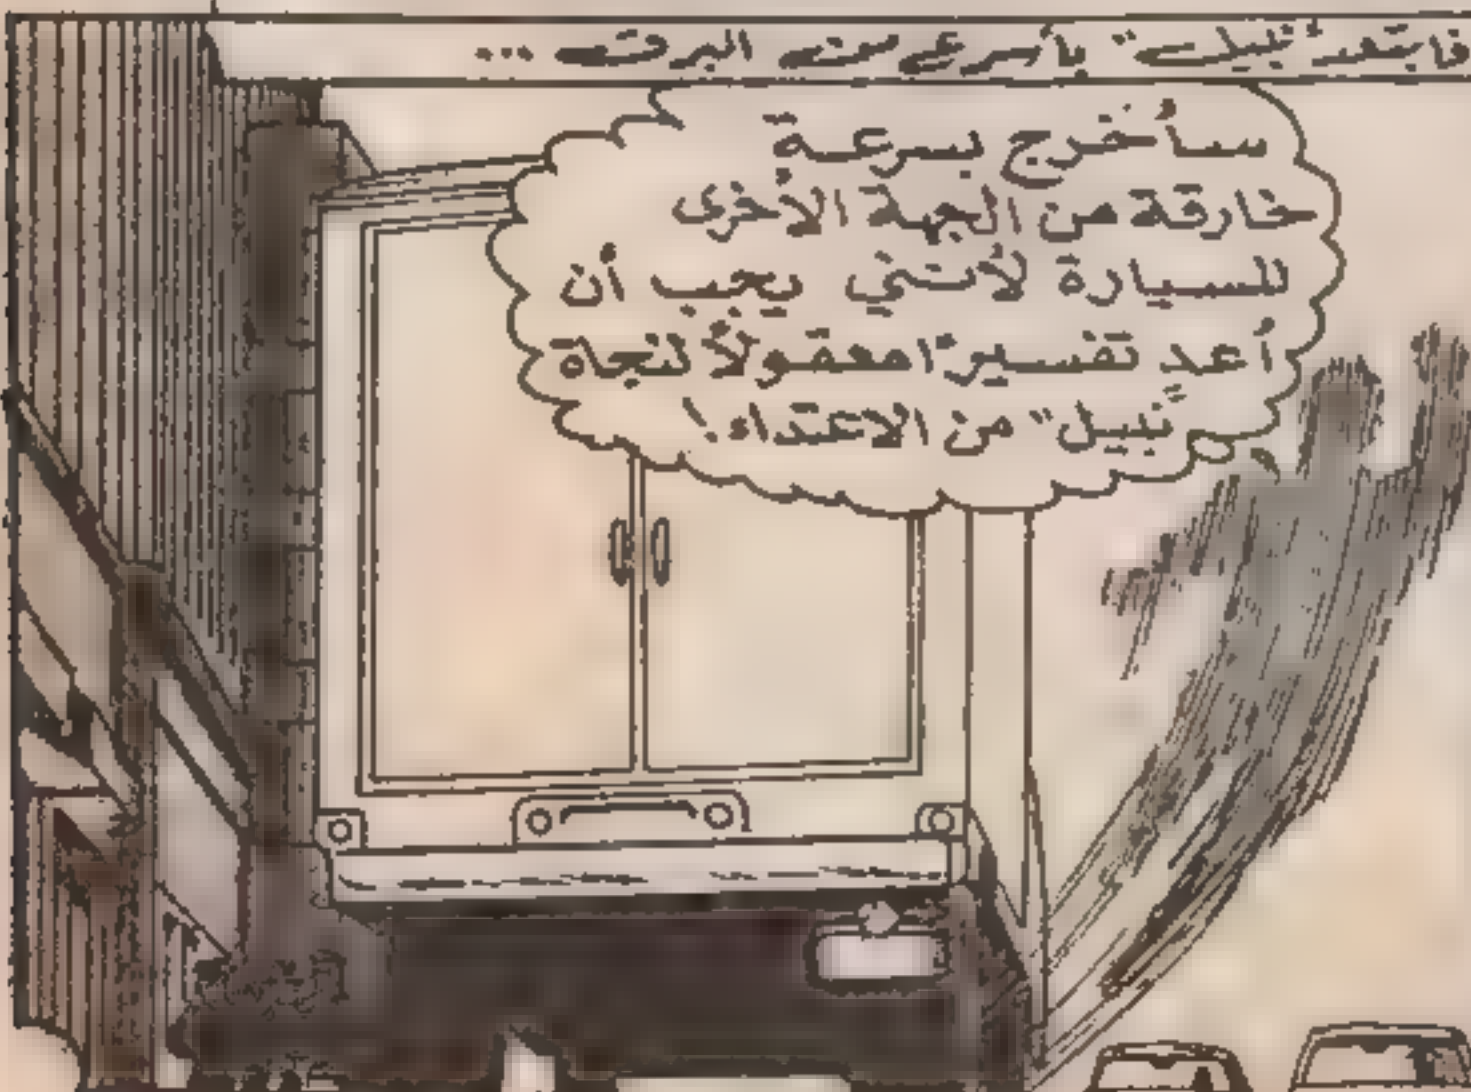 فابتعد "نبيل" بأسرع من البرق ...
سأخرج بسرعة
خارقة من الجهة الأخرى
للسيارة لأنني يجب أن
أعد تفسيرًا معقولاً لنجاة
"نبيل" من الاعتداء!